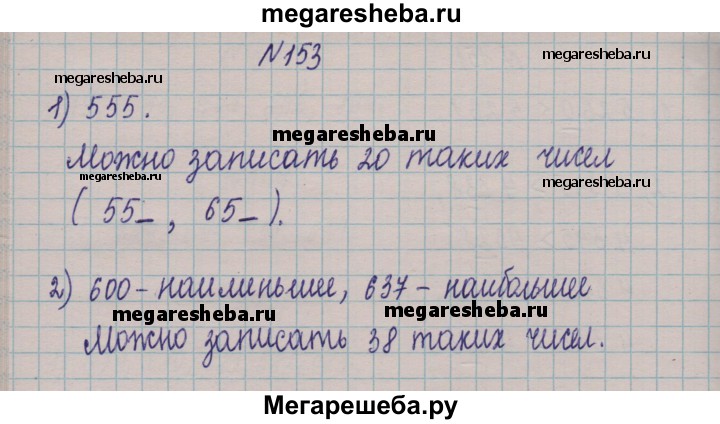 megaresheba.ru
N153
megaresheba.ru
megaresheba.ru
1) 555.
megaresheba.ru
Можно записать 20 таких чисел
megaresheba.ru
megaresheba.ru
( 55_ , 65_ ).
2) 600 - наименьшее, 637 - наибольшее
megaresheba.ru
megaresheba.ru
Можно записать 38 таких чисел.
Мегарешеба.ру